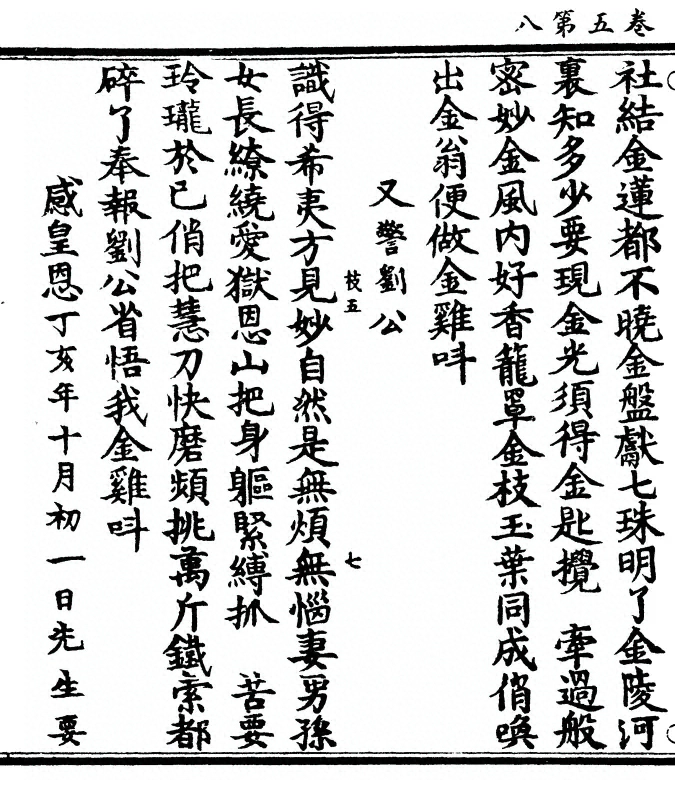 卷五第八
社結金蓮都不曉金盤獻七珠明了金陵河
裏知多少要現金光須得金匙攪　牽過般
密妙金風内好香籠罩金枝玉葉同成俏喚
出金翁便做金雞呌
又警劉公
枝五　七
識得希夷方見妙自然是無煩無惱妻男孫
女長繚繞愛獄恩山把身軀緊縛抓　苦要
玲瓏於已俏把慧刀快磨頻挑萬斤鐵索都
碎了奉報劉公省悟我金雞呌
感皇恩丁亥年十月初一日先生要